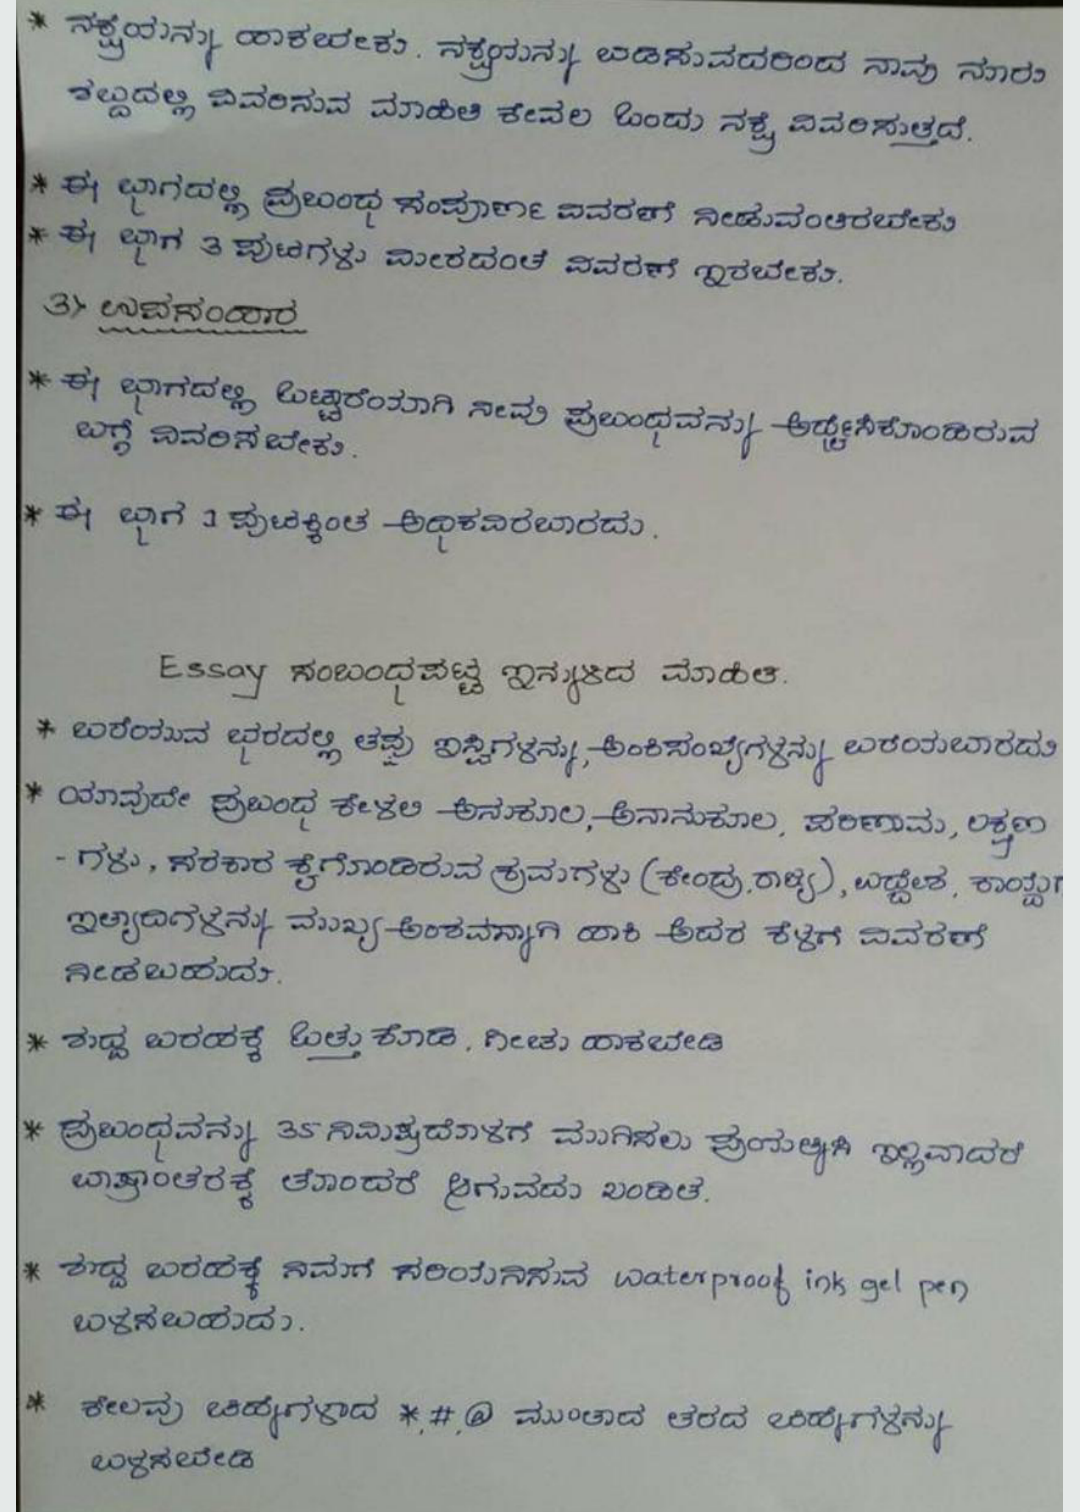 * ನಕ್ಷೆಯನ್ನು ಹಾಕಬೇಕು. ನಕ್ಷೆಯನ್ನು ಬಿಡಿಸುವದರಿಂದ ನಾವು ನೂರು
ಶಬ್ದದಲ್ಲಿ ವಿವರಿಸುವ ಮಾಹಿತಿ ಕೇವಲ ಒಂದು ನಕ್ಷೆ ವಿವರಿಸುತ್ತದೆ.
* ಈ ಭಾಗದಲ್ಲಿ ಪ್ರಬಂಧ ಸಂಪೂರ್ಣ ವಿವರಣೆ ನೀಡುವಂತಿರಬೇಕು
* ಈ ಭಾಗ 3 ಪುಟಗಳು ಮೀರದಂತೆ ವಿವರಣೆ ಇರಬೇಕು.
3) ಉಪಸಂಹಾರ
* ಈ ಭಾಗದಲ್ಲಿ ಒಟ್ಟಾರೆಯಾಗಿ ನೀವು ಪ್ರಬಂಧವನ್ನು ಅರ್ಥೈಸಿಕೊಂಡಿರುವ
ಬಗ್ಗೆ ವಿವರಿಸಬೇಕು.
* ಈ ಭಾಗ 1 ಪುಟಕ್ಕಿಂತ ಅಧಿಕವಿರಬಾರದು.
Essay ಸಂಬಂಧಪಟ್ಟ ಇನ್ನುಳಿದ ಮಾಹಿತಿ.
* ಬರೆಯುವ ಭರದಲ್ಲಿ ತಪ್ಪು ಇಸ್ವಿಗಳನ್ನು, ಅಂಕಿಸಂಖ್ಯೆಗಳನ್ನು ಬರೆಯಬಾರದು
* ಯಾವುದೇ ಪ್ರಬಂಧ ಕೇಳಲಿ ಅನುಕೂಲ, ಅನಾನುಕೂಲ, ಪರಿಣಾಮ, ಲಕ್ಷಣ
- ಗಳು, ಸರಕಾರ ಕೈಗೊಂಡಿರುವ ಕ್ರಮಗಳು (ಕೇಂದ್ರ, ರಾಜ್ಯ), ಉದ್ದೇಶ,
ಇತ್ಯಾದಿಗಳನ್ನು ಮುಖ್ಯ ಅಂಶವನ್ನಾಗಿ ಹಾಕಿ ಅದರ ಕೆಳಗೆ ವಿವರಣೆ
ನೀಡಬಹುದು.
* ಶುದ್ಧ ಬರಹಕ್ಕೆ ಒತ್ತು ಕೊಡಿ, ಗೀಚು ಹಾಕಬೇಡಿ
* ಪ್ರಬಂಧವನ್ನು 35 ನಿಮಿಷದೊಳಗೆ ಮುಗಿಸಲು ಪ್ರಯತ್ನಿಸಿ ಇಲ್ಲವಾದರೆ
ಭಾಷಾಂತರಕ್ಕೆ ತೊಂದರೆ ಆಗುವದು ಖಂಡಿತ.
* ಶುದ್ಧ ಬರಹಕ್ಕೆ ನಿಮಗೆ ಸರಿಯೆನಿಸುವ waterproof ink gel pen
ಬಳಸಬಹುದು.
* ಕೇಲವು ಚಿಹ್ನೆಗಳಾದ *, #, @ ಮುಂತಾದ ತರದ ಚಿಹ್ನೆಗಳನ್ನು
ಬಳಸಬೇಡಿ